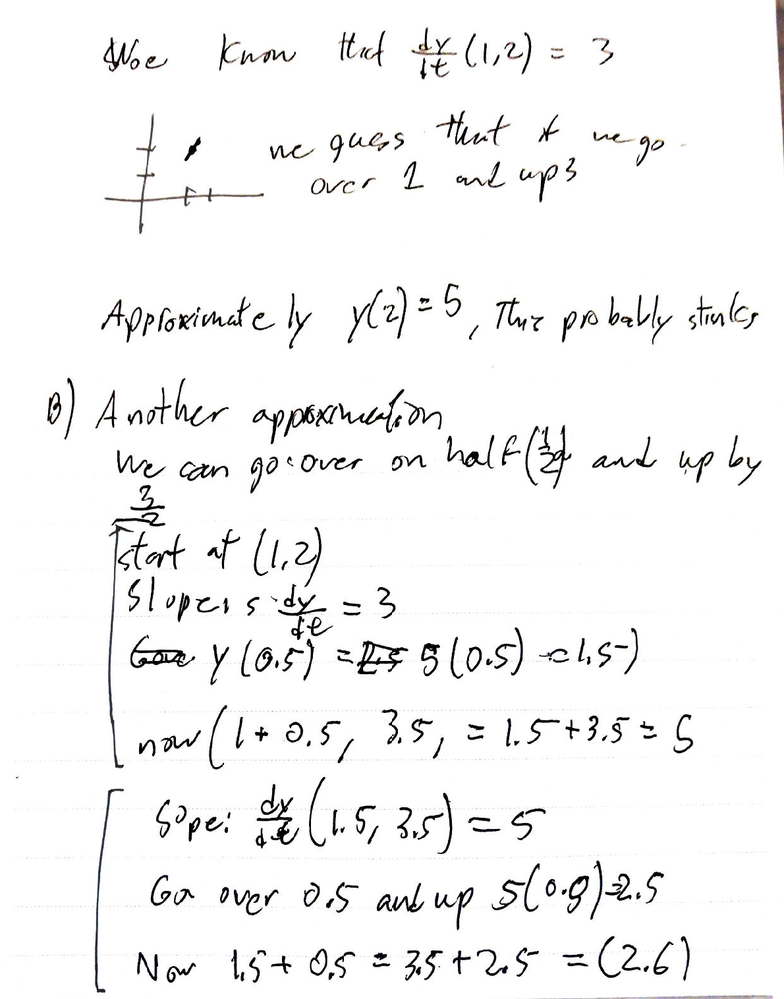 We know that dy/dt (1,2) = 3
we guess that if we go
over 1 and up 3
Approximately y(2) = 5, This probably stinks
B) Another approximation
We can go over on half (1/2) and up by
3/2
start at (1,2)
Slope is dy/dt = 3
y(0.5) = 3(0.5) = 1.5)
now (1 + 0.5, 3.5, = 1.5 + 3.5 = 5
Sope: dy/dt (1.5, 3.5) = 5
Go over 0.5 and up 5(0.5) = 2.5
Now 1.5 + 0.5 = 3.5 + 2.5 = (2.6)